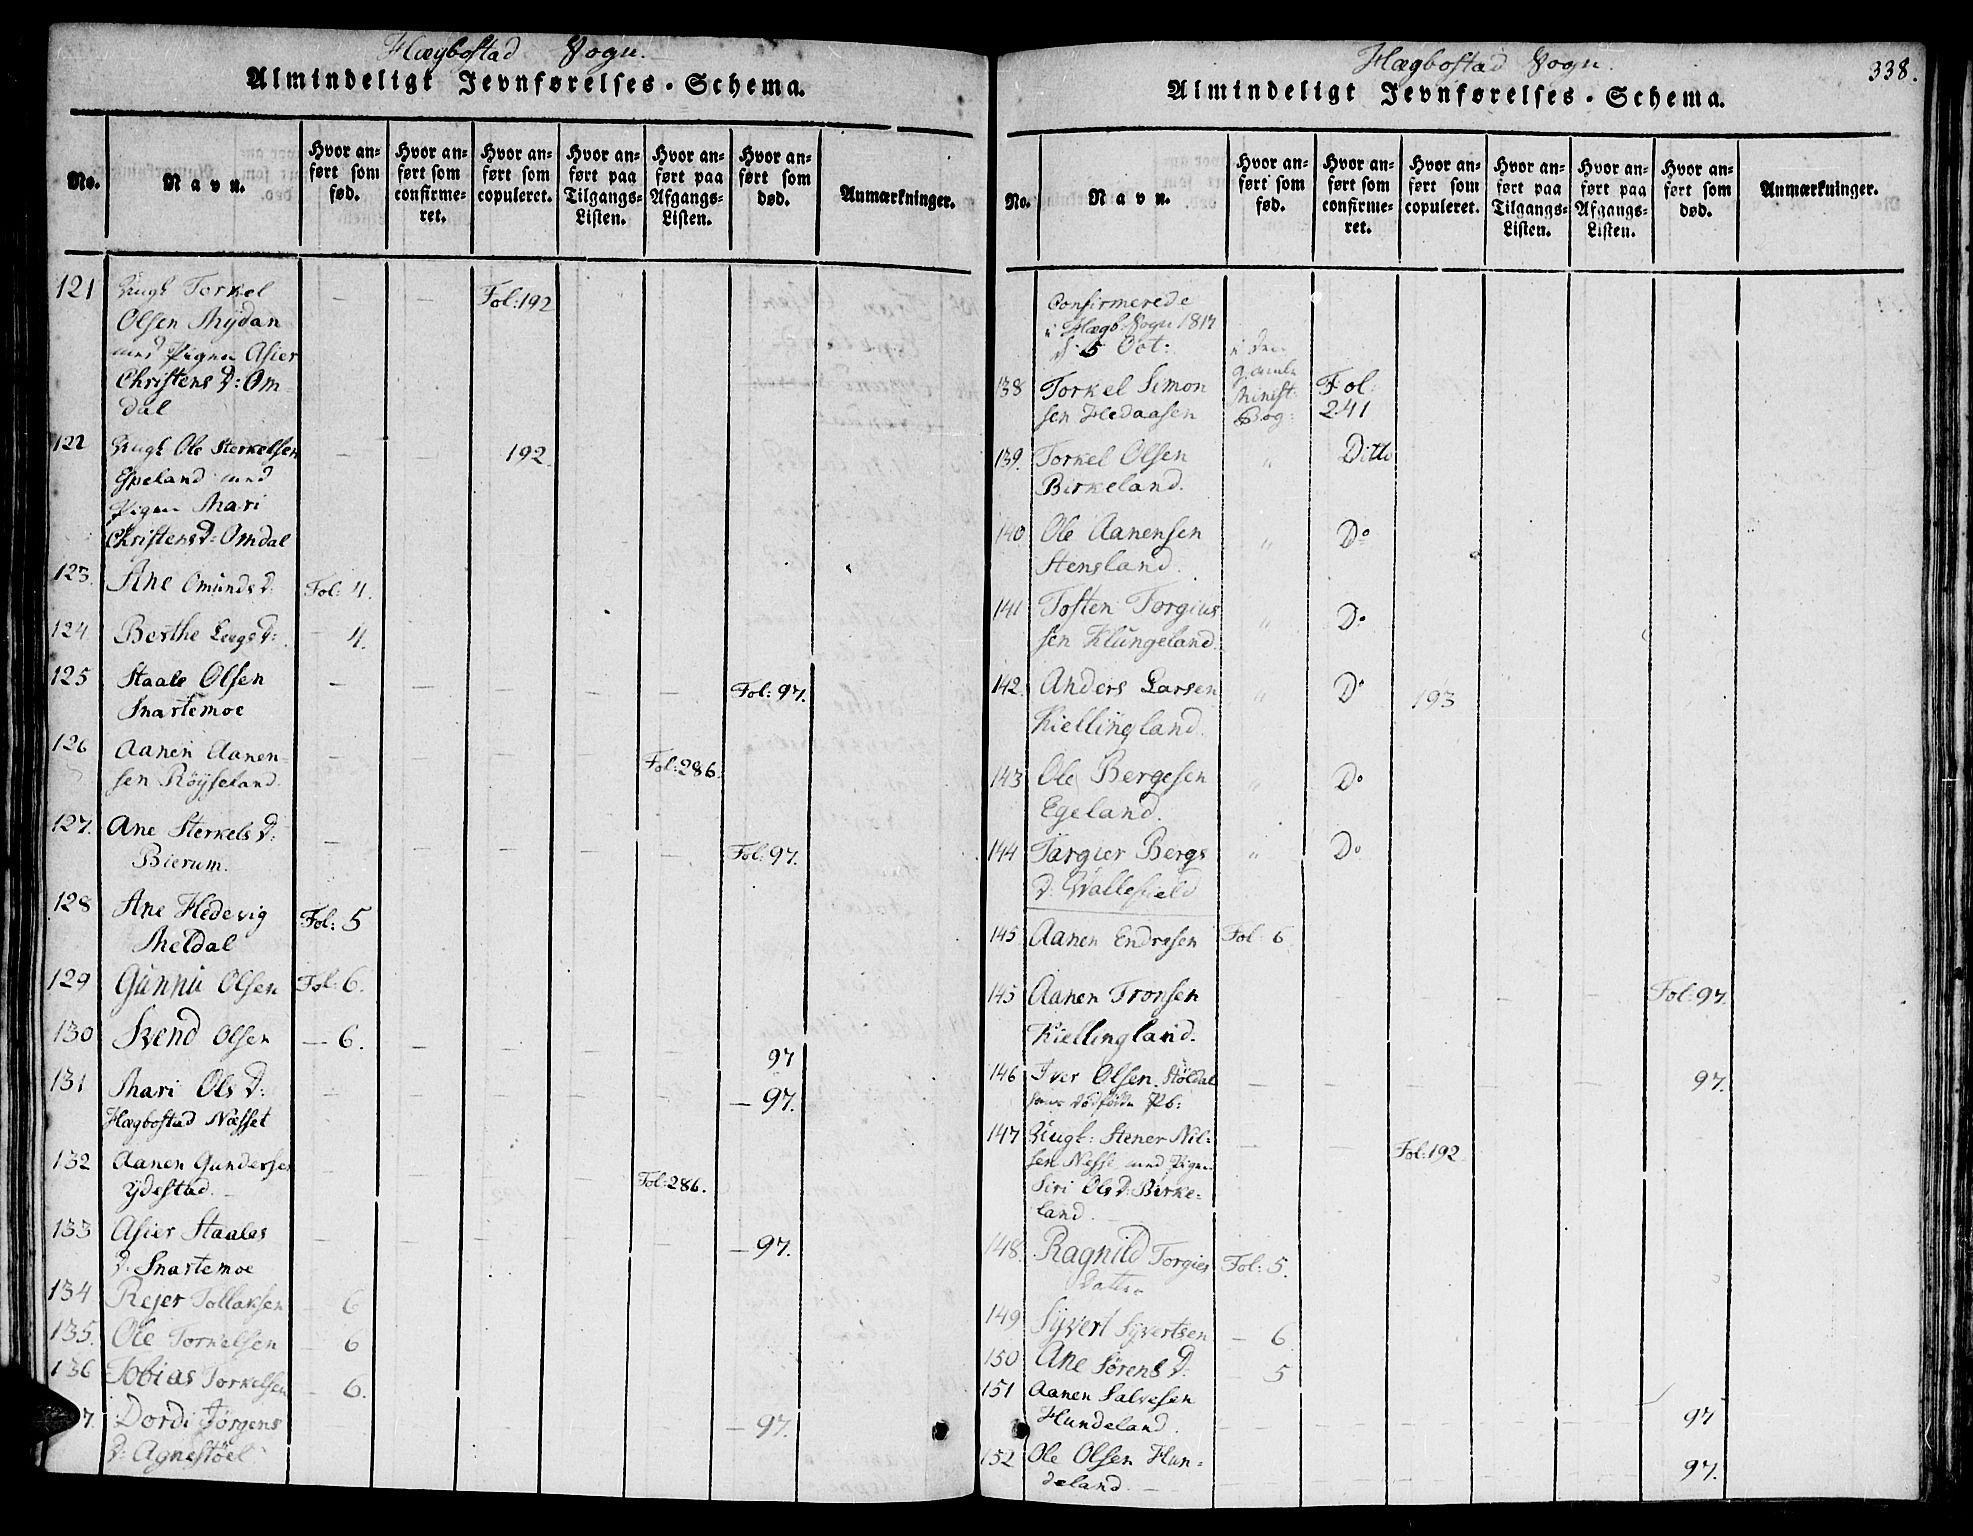 Hægbostad Sogn.
Almindeligt Jevnførelses-Schema.
No.
Navn.
Hvor an-
ført som
fød.
Hvor an-
ført som
confirme-
ret.
Hvor an-
ført som
copuleret.
Hvor an-
ført paa
Tilgangs-
Listen.
Hvor an-
ført paa
Afgangs-
Listen.
Hvor an-
ført som
død.
Anmærkninger.
121 Ungk Torkel Fol: 192
Olsen Mydan
med Pigen Asier
Christens D: Om
dal
122 Ungk Ole Sterkelsen 192
Epeland med
Pigen Mari
Christens D: Omdal
123. Ane Omunds D: Fol: 4.
124 Berthe D: 4.
125 Staale Olsen Fol: 97.
Snartemoe
126 Aanen Aanen- Fol: 286.
sen Röyseland.
127. Ane Sterkels D: Fol: 97.
Bierum.
128 Ane Hedevig Fol: 5
Meldal
129 Gunnu Olsen Fol: 6.
130 Svend Olsen — 6. 97
131 Mari Ols D: — 97.
Hægbostad Næsset
132 Aanen Gundersen Fol: 286.
Ydestad.
133 Asier Staales — 97.
D: Snartemoe
134 Rejer Tollaksen — 6
135. Ole Torkelsen — 6
136 Tobias Torkelsen — 6.
7. Dordi Jørgens — 97.
D: Agnestöel
Hægbostad Sogn.
338.
Almindeligt Jevnførelses-Schema.
No.
Navn.
Hvor an-
ført som
fød.
Hvor an-
ført som
confirme-
ret.
Hvor an-
ført som
copuleret.
Hvor an-
ført paa
Tilgangs-
Listen.
Hvor an-
ført paa
Afgangs-
Listen.
Hvor an-
ført som
død.
Anmærkninger.
Confirmerede
i Hægb: Sogn 1817
d: 5 Oct: i den
gamle
138 Torkel Simon Minist: Fol:
sen Hedaasen Bog: 241
139. Torkel Olsen " Ditto
Birkeland.
140 Ole Aanensen " Do
Stensland.
141 Tosten Torgius " Do
sen Klungeland.
142. Anders Larsen " Do 193
Kiellingland.
143 Ole Bergesen " Do
Egeland.
144 Targier Bergs " Do
D: Wallefield
145 Aanen Endresen Fol: 6
145 Aanen Tronsen Fol: 97.
Kiellingland.
146 Iver Olsen Stöldal 97.
147 Ungk: Stener Nil- Fol: 192
sen Nesse med Pigen
Siri Ols D: Birke-
land.
148. Ragnild Torgies Fol: 5.
Datter
149 Syvert Syvertsen — 6
150 Ane Sörens D: — 5
151 Aanen Salvesen 97
Hundeland.
152 Ole Olsen Hun- 97.
deland.